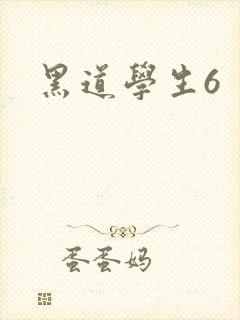 黑道學生6
蛋蛋妈